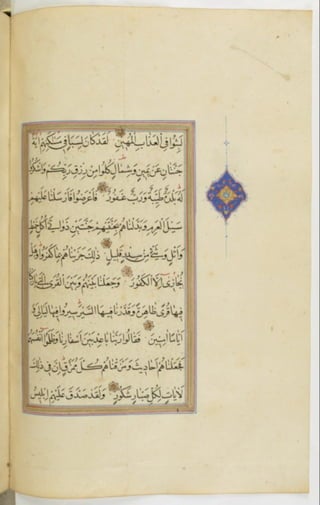 لبثوا في العذاب المهين لقد كان لسبا في مساكنهم آية
جنتان عن يمين وشمال كلوا من رزق ربكم واشكروا
له بلدة طيبة ورب غفور فاعرضوا فارسلنا عليهم
سيل العرم وبدلناهم بجنتيهم جنتين ذواتي اكل خمط
واثل وشيء من سدر قليل ذلك جزيناهم بما كفروا وهل
يجازى الا الكفور وجعلنا بينهم وبين القرى التي باركنا
فيها قرى ظاهرة وقدرنا فيها السير سيروا فيها ليالي و
اياما آمنين فقالوا ربنا باعد بين اسفارنا وظلموا انفسهم
فجعلناهم احاديث ومزقناهم كل ممزق ان في ذلك
لايات لكل صبار شكور ولقد صدق عليهم ابليس